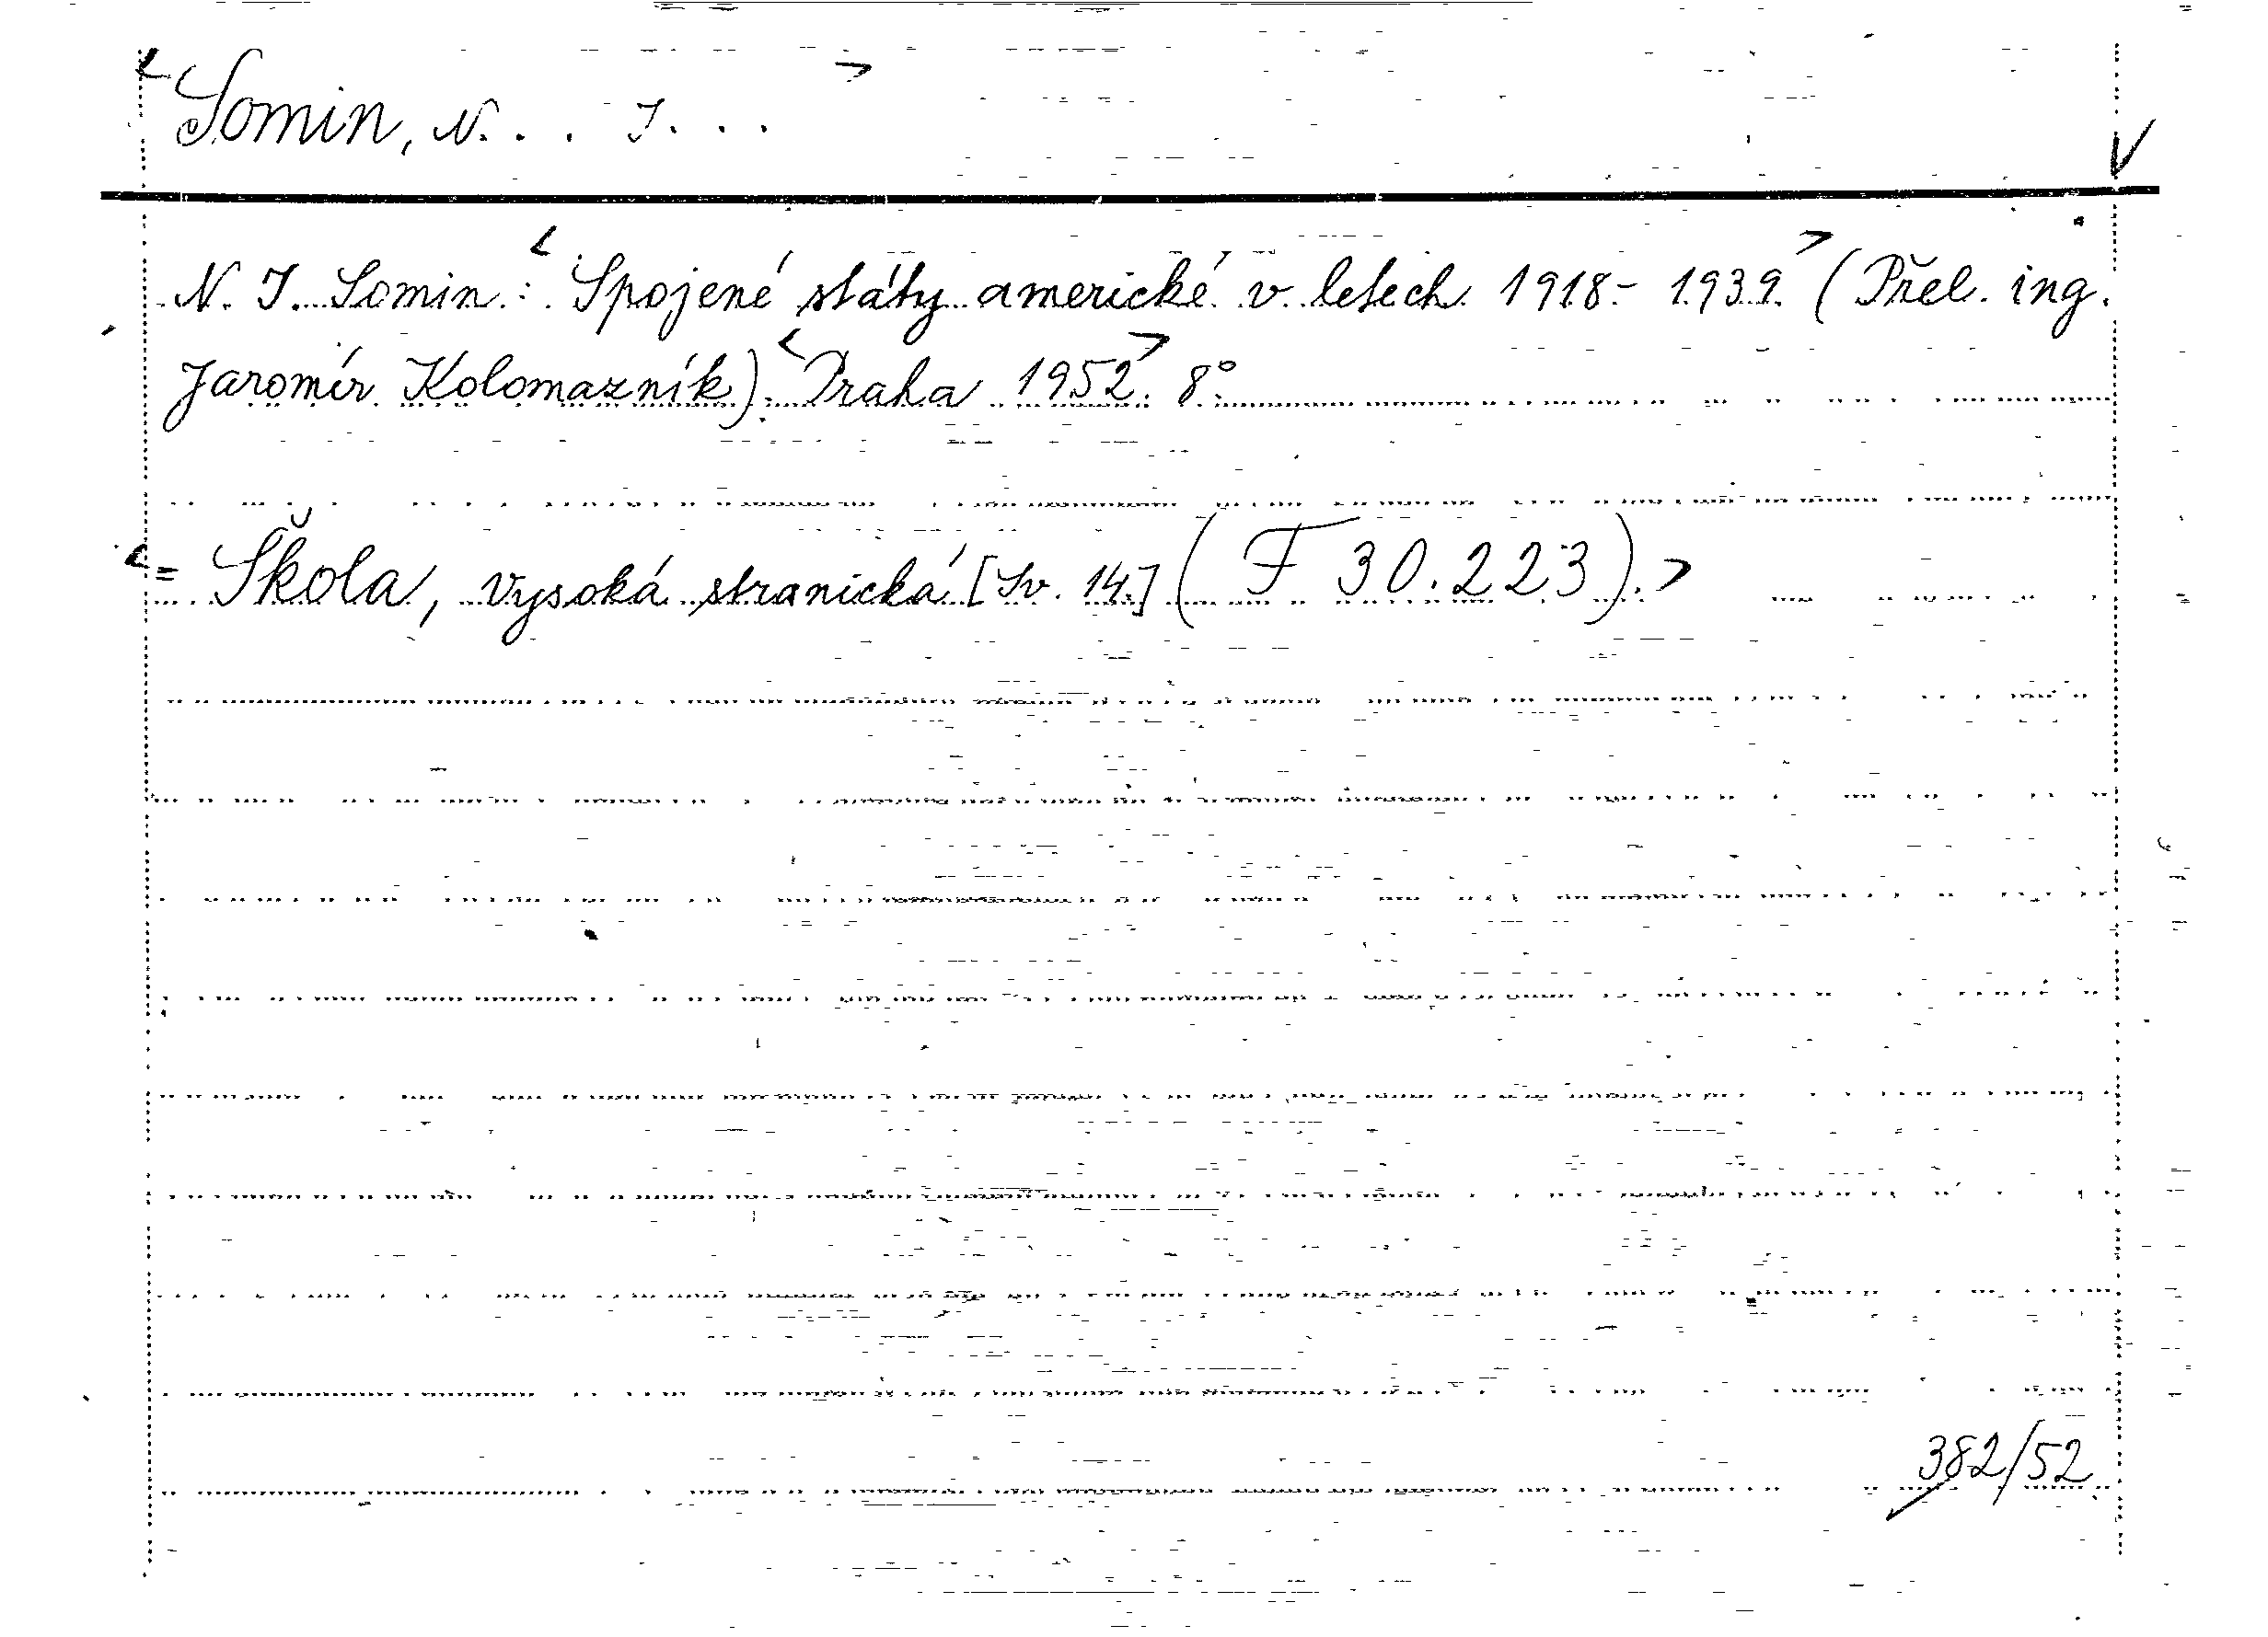 Somin, N. . . I. . .
N. I. Somin: Spojené státy americké v letech 1918-1939. (Přel. ing.
Jaromír Kolomazník). Praha 1952. 8°.
= Škola, Vysoká stranická [Sv. 14.] (F 30.223).
382/52